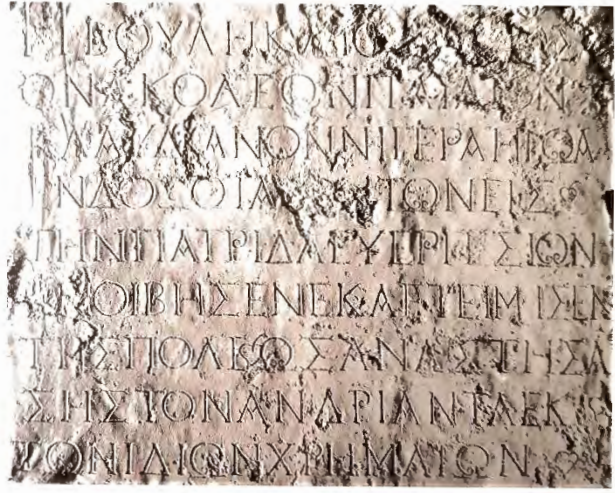 Η ΒΟΥΛΗ ΚΑΙ Ο ΔΗΜΟΣ
Ο ΝΑΚΟΛΕΩΝ Π ΑΙΛΙΟΝ
ΚΛΑΥΔΙΑΝΟΝ ΝΙΓΕΡΑ
ΕΝΔΟΞΟΤΑΤΩΝ ΕΙΣ
ΤΗΝ ΠΑΤΡΙΔΑ ΕΥΕΡΓΕΣΙΩΝ
ΑΜΟΙΒΗΣ ΕΝΕΚΑ ΕΤΕΙΜΗΣΕΝ
ΤΗΣ ΠΟΛΕΩΣ ΑΝΑΣΤΗΣΑ
ΣΗΣ ΤΟΝ ΑΝΔΡΙΑΝΤΑ ΕΚ
ΤΩΝ ΙΔΙΩΝ ΧΡΗΜΑΤΩΝ